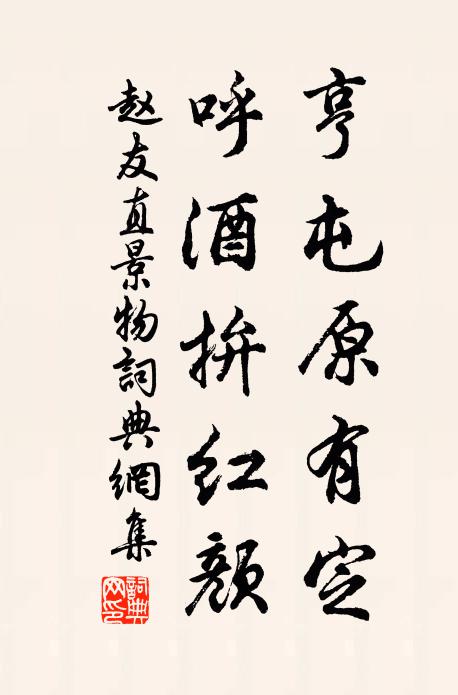 亨屯原有定
呼酒拚红颜
赵友直景物詞典網集
詞典网印